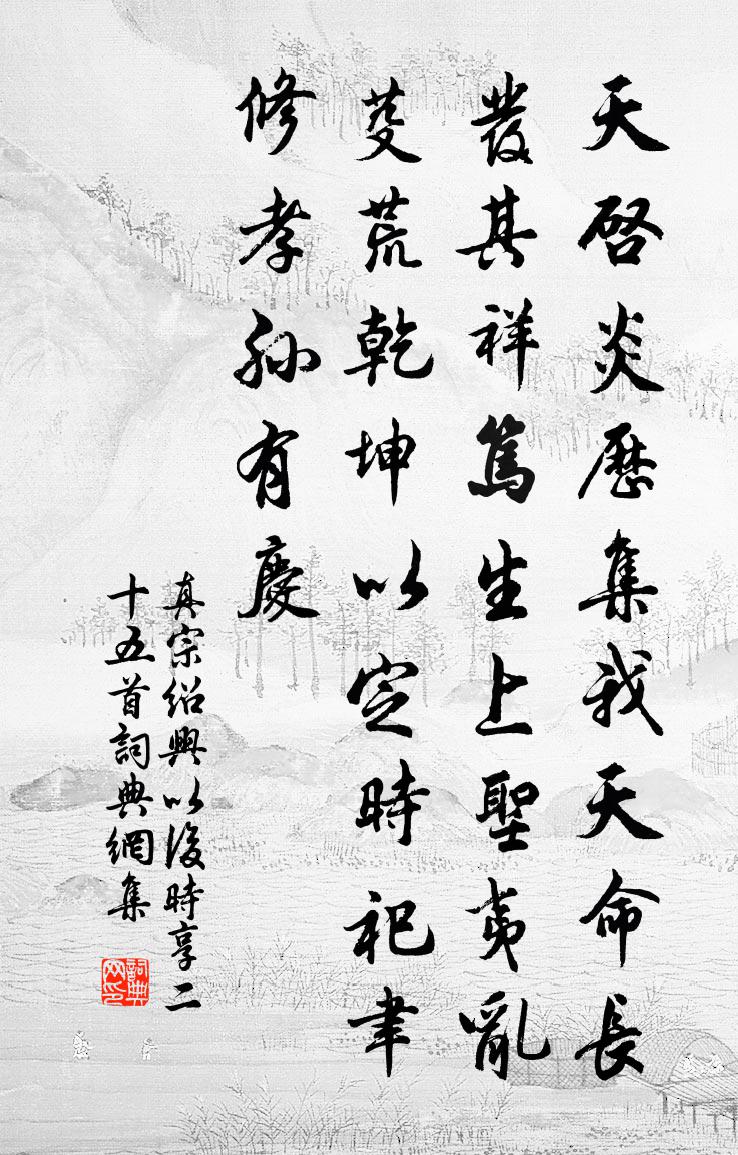 天啓炎歷集我天命長
發其祥篤生上聖夷亂
芟荒乾坤以定時祀聿
修孝孫有慶
真宗紹興以後時享二
十五首詞典網集
詞典
网印